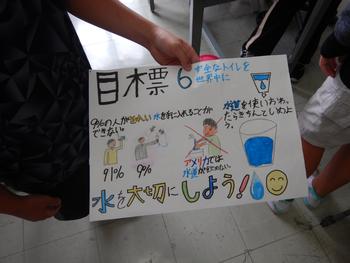 目標 6
安全なトイレを
世界中に
9%の人がきれいな水を手に入れることが
できない。
91% 9%
アメリカでは
水道が飲めない。
水道を使いおわっ
たらきちんとしめよ
う。
水を大切にしよう!